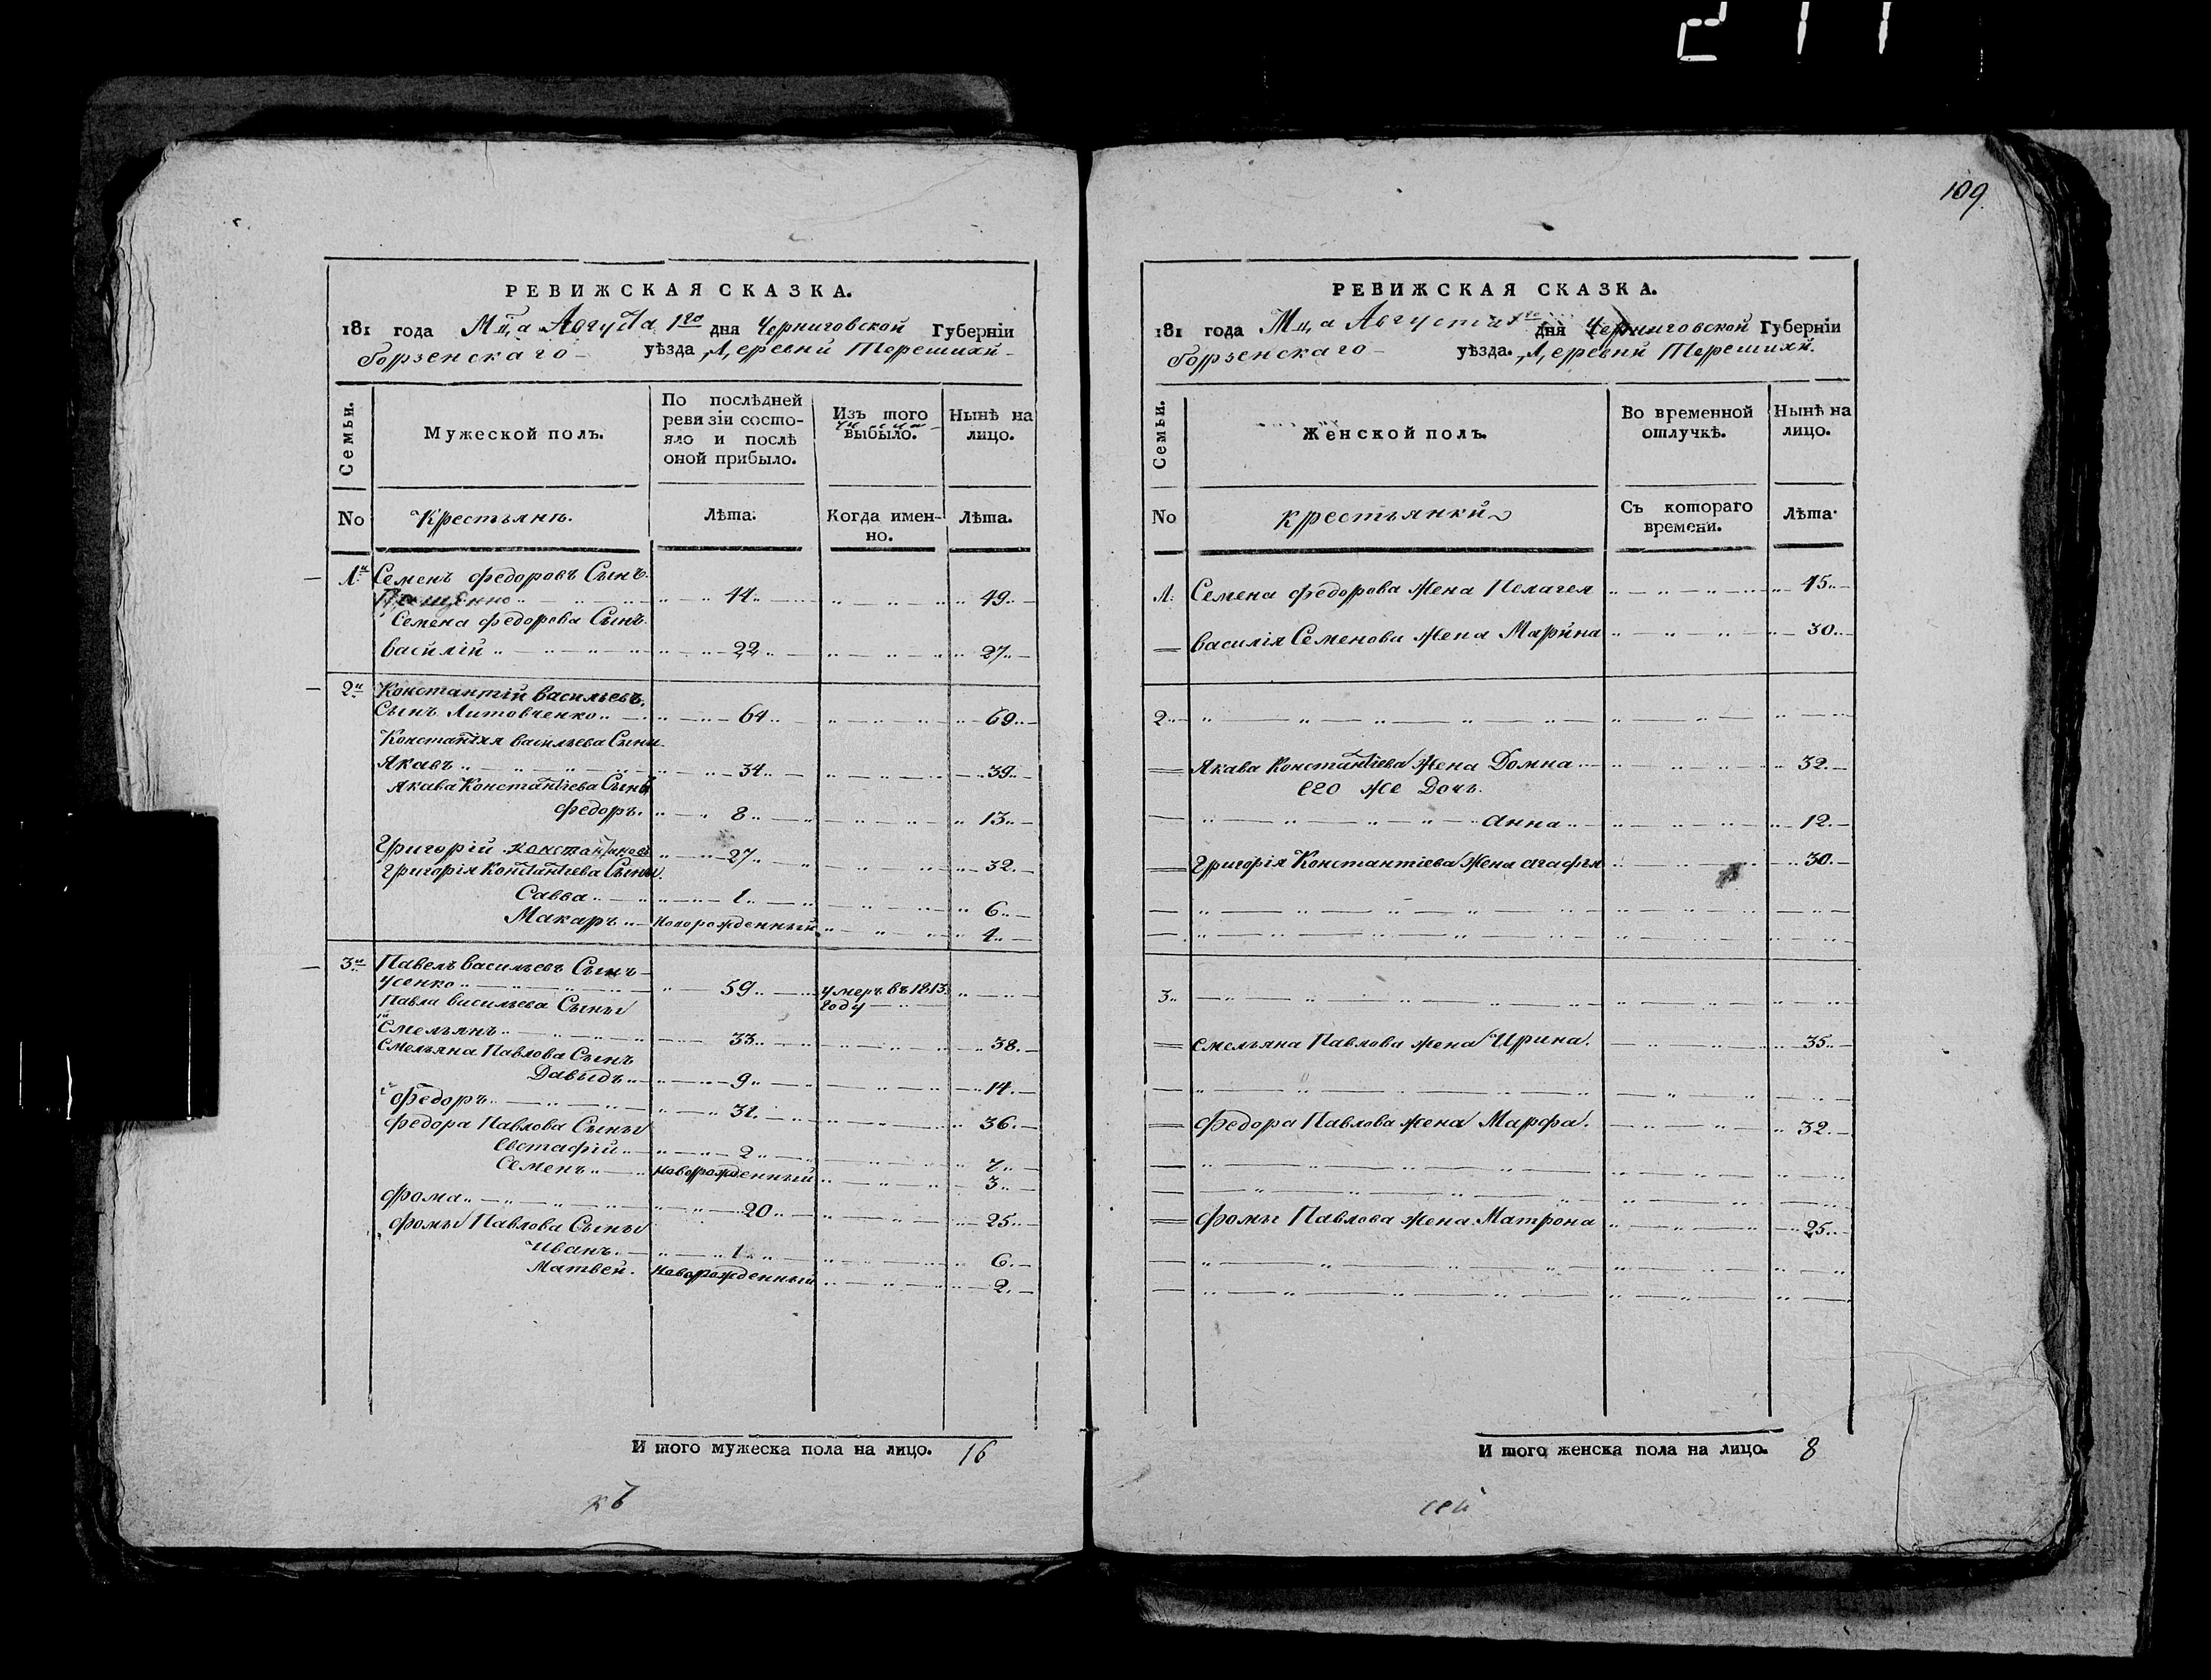 211
109.
РЕВИЖСКАЯ СКАЗКА.
181 года Мца Августа 1го дня Черниговской Губернїи
борзенскаго уѣзда Деревни Терешихи
Семьи.
Мужеской полъ.
По послѣдней ревизїи состояло и послѣ оной прибыло.
Изъ того числа выбыло.
Нынѣ на лицо.
No
Крестьянъ.
Лѣта.
Когда именно.
Лѣта.
1й Семенъ федоровъ Сынъ
44 49
Семена федорова Сынъ
василїй 22 27
2й Константїй васильевъ
Сынъ Литовченко 64 69
Константїя васильева Сыни
Якавъ 34 39
Якава Константїева Сынъ
федоръ 8 13
Григорїй константиновъ 27 32
Григорїя Константїева Сыны
Савва 1 6
Макаръ новорожденный 4
3й Павелъ васильевъ Сынъ
Усенко 59 умеръ въ 1813 году
Павла васильева Сыны
Емельянъ 33 38
Емельяна Павлова Сынъ
Давыдъ 9 14
федоръ 31 36
федора Павлова Сыны
Евстафїй 2 7
Семенъ новорожденный 3
фома 20 25
фомы Павлова Сыны
Иванъ 1 6
Матвей новорожденный 2
И того мужеска пола на лицо. 16
РЕВИЖСКАЯ СКАЗКА.
181 года Мца Августа 1го дня Черниговской Губернїи
борзенскаго уѣзда. Деревни Терешихи.
Семьи.
Женской полъ.
Во временной отлучкѣ.
Нынѣ на лицо.
No
крестьянки
Съ котораго времени.
Лѣта
1. Семена федорова жена Пелагея 45
василїя Семенова жена Марина 30
2
Якава Константїева жена Домна 32
его же Дочь
анна 12
Григорїя Константїева жена агафїя 30
3
Емельяна Павлова жена Ирина. 35
Федора Павлова жена Марфа. 32
фомы Павлова жена Матрона 25
И того женска пола на лицо. 8